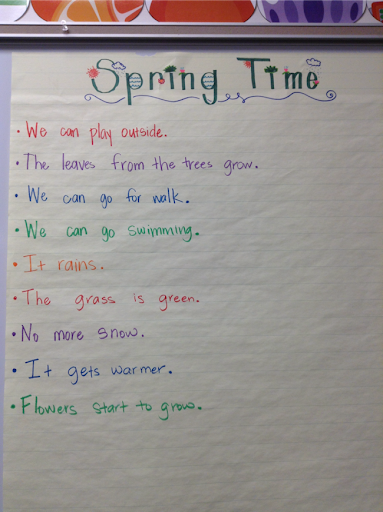 Spring Time
• We can play outside.
• The leaves from the trees grow.
• We can go for walk.
• We can go swimming.
• It rains.
• The grass is green.
• No more snow.
• It gets warmer.
• Flowers start to grow.